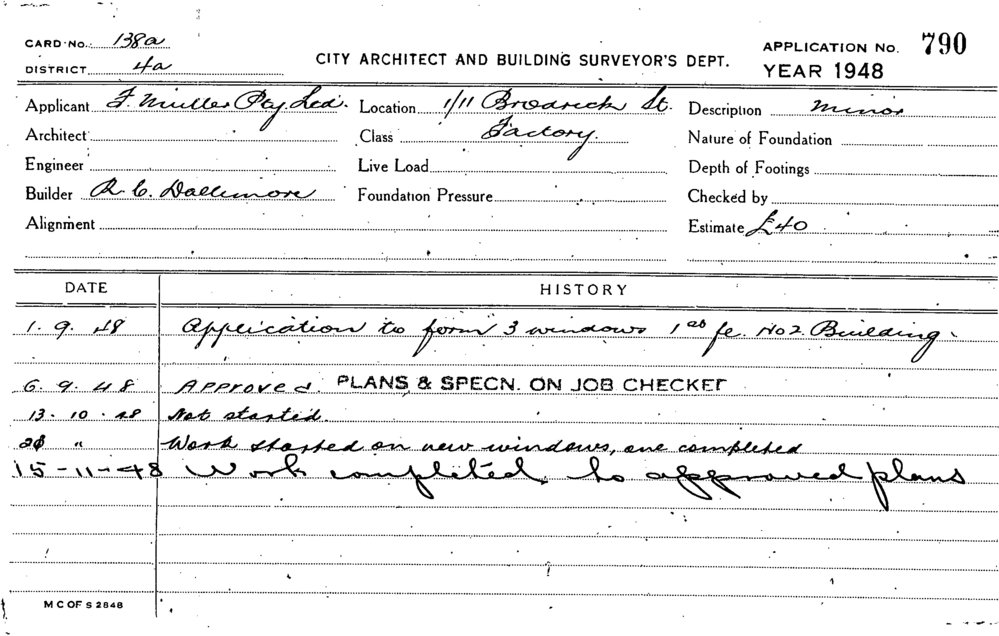 CARD No. 138a
DISTRICT 4a
CITY ARCHITECT AND BUILDING SURVEYOR'S DEPT.
APPLICATION No. 790
YEAR 1948
Applicant F. Muller Pty Ltd. Location 1/11 Brodrick St. Description Minor
Architect Class Factory. Nature of Foundation
Engineer Live Load Depth of Footings
Builder R. C. Dallimore Foundation Pressure Checked by
Alignment Estimate £40
DATE HISTORY
1. 9. 48 Application to form 3 windows 1st fl. No 2 Building.
6. 9. 48 Approved. PLANS & SPECN. ON JOB CHECKET
13. 10. 48 Not started.
" Work started on new windows, one completed
15-11-48 Work completed, to approved plans
M C OF S 2848